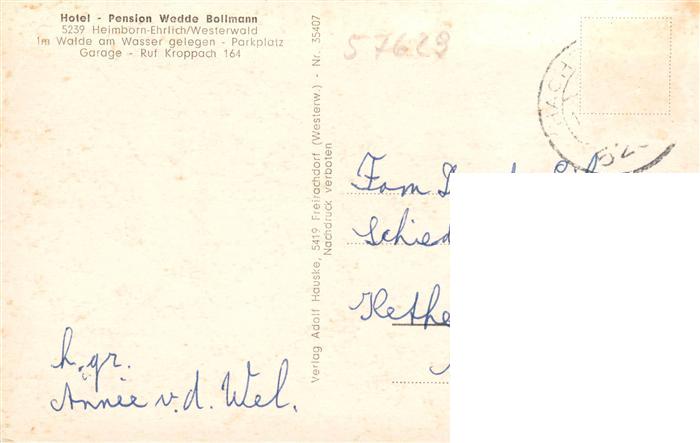 Hotel - Pension Wedde Bollmann
5239 Heimborn-Ehrlich/Westerwald
Im Walde am Wasser gelegen - Parkplatz
Garage - Ruf Kroppach 164
57629
Verlag Adolf Hauske, 5419 Freirachdorf (Westerw.) - Nr. 35407
Nachdruck verboten
Fam
h.gr.
Annie v.d. Wel.